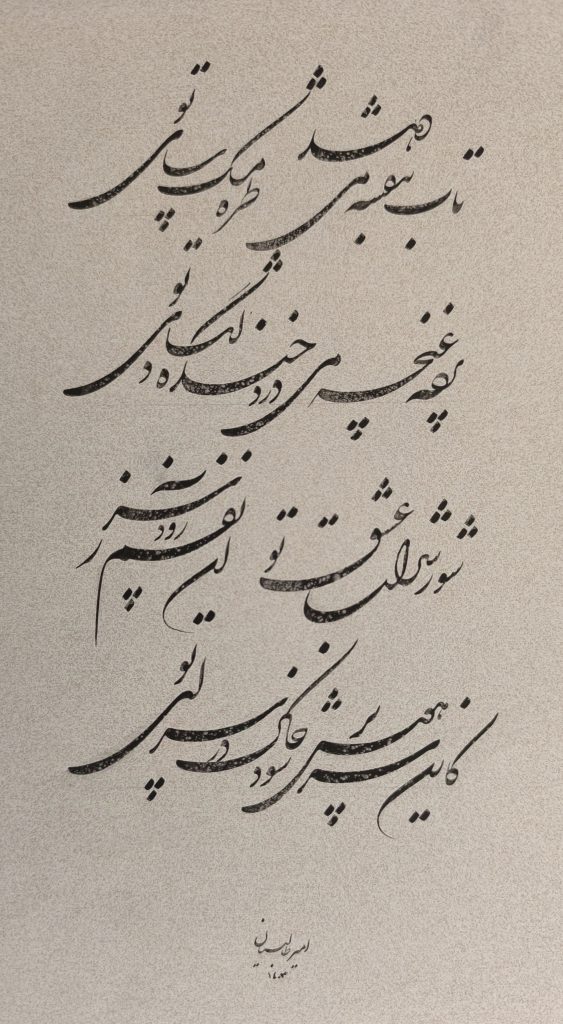 تاب بنفشه می دهد طره مشک سای تو
پرده غنچه می درد خنده دلگشای تو
شور شراب عشق تو آن نفسم رود ز سر
کاین سر پر هوس شود خاک در سرای تو
امیر طالبیان